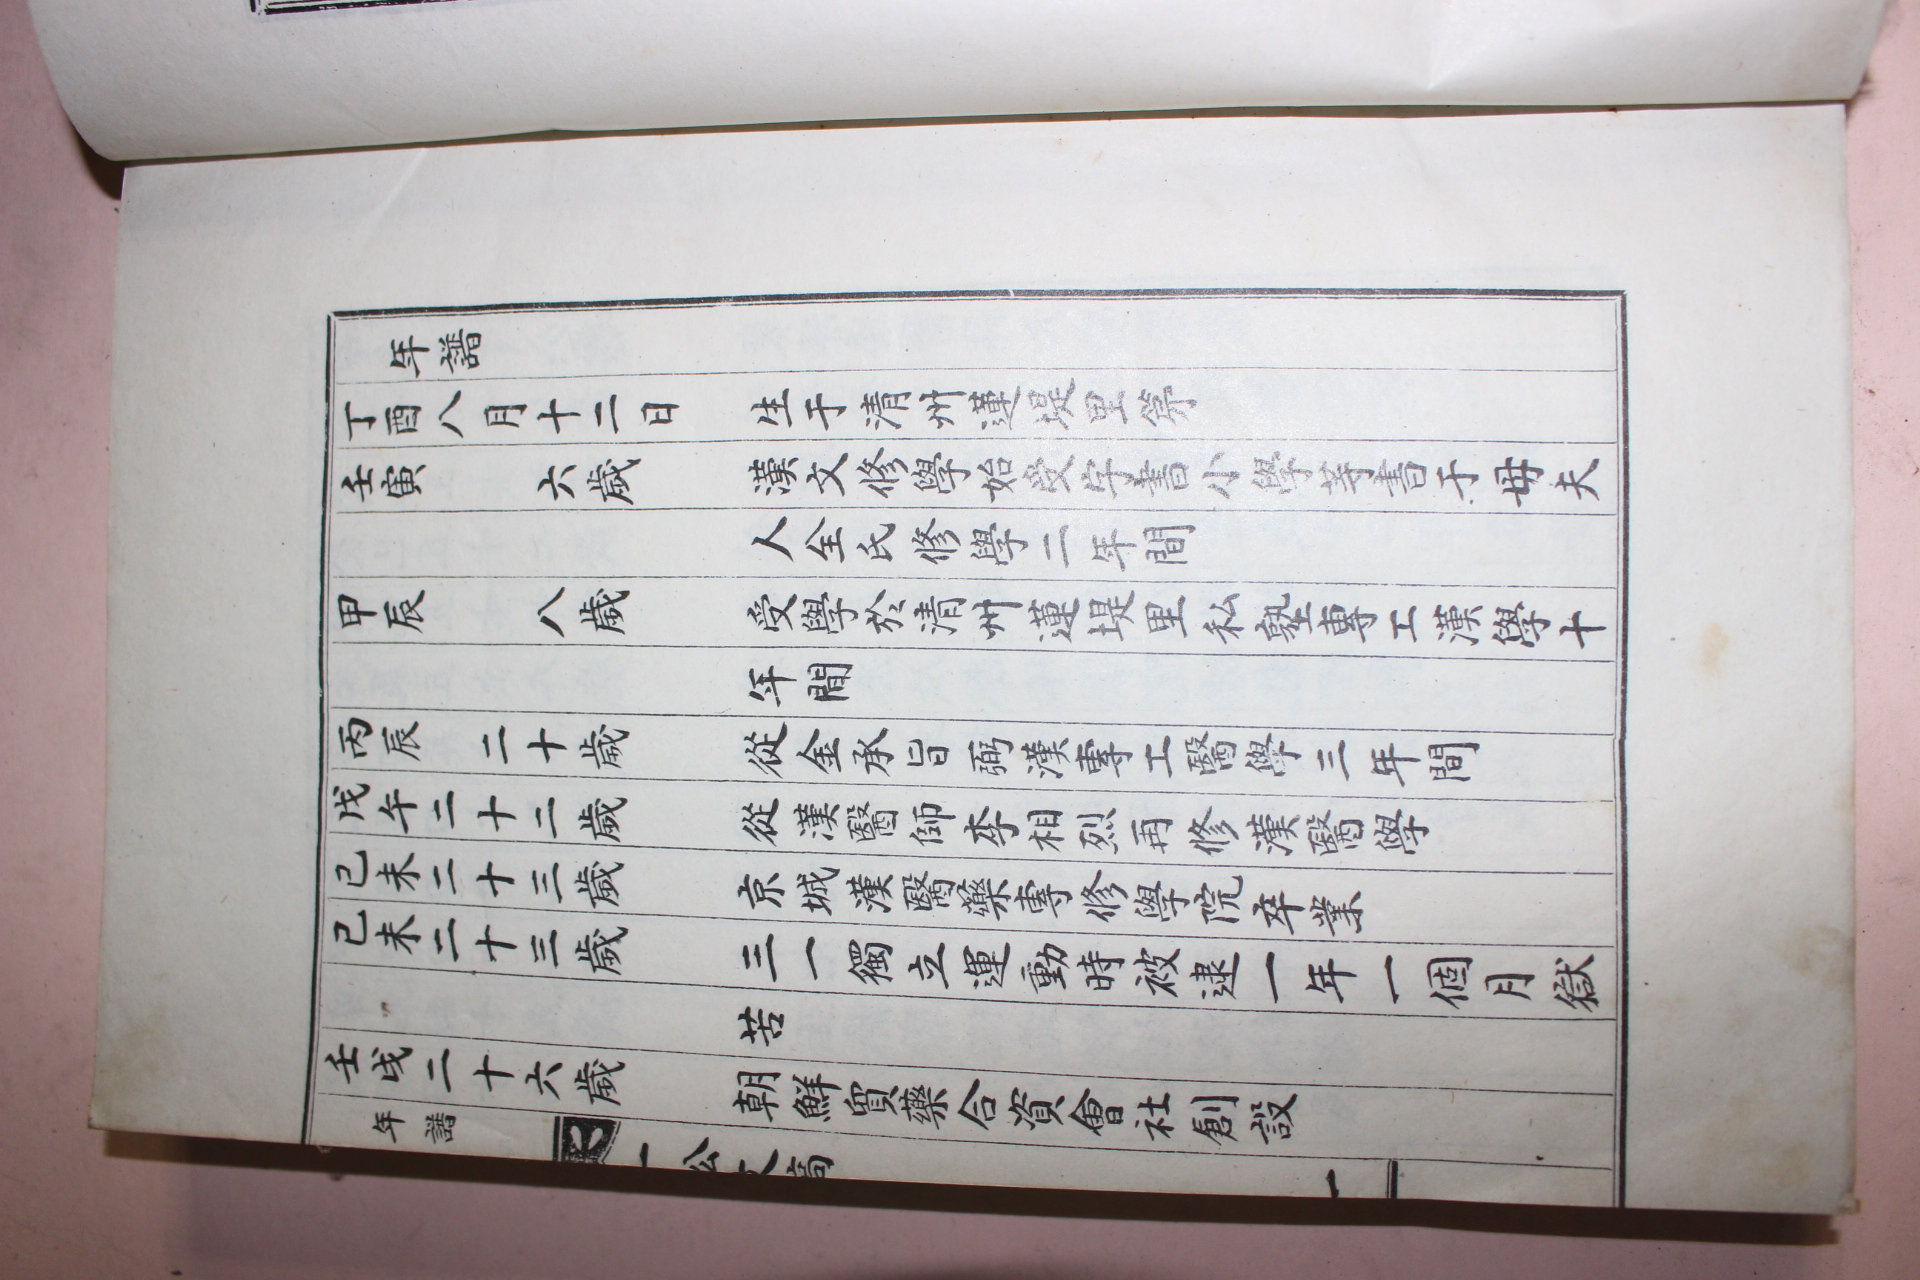 年譜
丁酉八月十二日 生于清州蓮堤里第
壬寅 六歲 漢文修學始受字書小學等書于毋夫
人全氏修學二年間
甲辰 八歲 受學於清州蓮堤里私塾專工漢學十
年間
丙辰 二十歲 從金承旨弼漢專工醫學三年間
戊午二十二歲 從漢醫師李相烈再修漢醫學
己未二十三歲 京城漢醫藥專修學院卒業
己未二十三歲 三一獨立運動時被逮一年一個月獄
苦
壬戌二十六歲 朝鮮貿藥合資會社創設
一松文稿 年譜 一